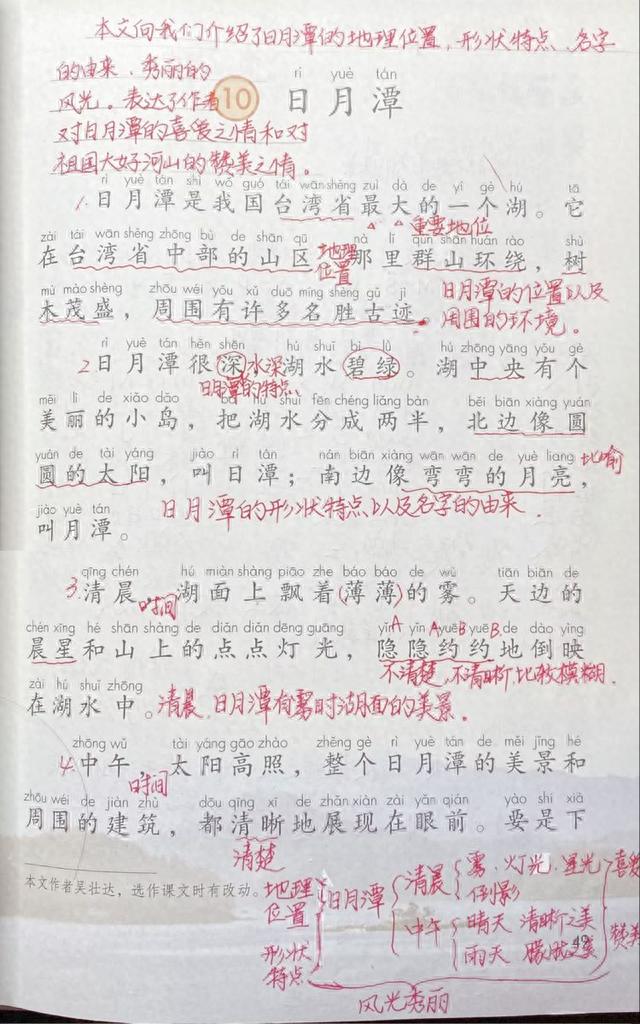 本文向我们介绍了日月潭的地理位置，形状特点、名字
的由来、秀丽的
风光。表达了作者
对日月潭的喜爱之情和对
祖国大好河山的赞美之情。
rì yuè tán
10 日月潭
rì yuè tán shì wǒ guó tái wān shěng zuì dà de yí gè hú tā
1. 日月潭是我国台湾省最大的一个湖。它
重要地位
zài tái wān shěng zhōng bù de shān qū nà lǐ qún shān huán rào shù
在台湾省中部的山区 那里群山环绕，树
地理
位置
mù mào shèng zhōu wéi yǒu xǔ duō míng shèng gǔ jì
木茂盛，周围有许多名胜古迹。
日月潭的位置以及
周围的环境。
rì yuè tán hěn shēn hú shuǐ bì lǜ hú zhōng yāng yǒu gè
2 日月潭很深 水深 湖水碧绿。湖中央有个
日月潭的特点
měi lì de xiǎo dǎo bǎ hú shuǐ fēn chéng liǎng bàn běi biān xiàng yuán
美丽的小岛，把湖水分成两半，北边像圆
yuán de tài yáng jiào rì tán nán biān xiàng wān wān de yuè liang
圆的太阳，叫日潭；南边像弯弯的月亮，
比喻
jiào yuè tán
叫月潭。
日月潭的形状特点以及名字的由来．
qīng chén hú miàn shàng piāo zhe báo báo de wù tiān biān de
3. 清晨，湖面上飘着(薄薄)的雾。天边的
时间
chén xīng hé shān shàng de diǎn diǎn dēng guāng yǐn A yǐn A yuē B yuē B de dào yìng
晨星和山上的点点灯光，隐隐约约地倒映
不清楚，不清晰，比较模糊．
zài hú shuǐ zhōng
在湖水中。
清晨，日月潭有雾时湖面的美景．
zhōng wǔ tài yáng gāo zhào zhěng gè rì yuè tán de měi jǐng hé
4. 中午，太阳高照，整个日月潭的美景和
时间
zhōu wéi de jiàn zhù dōu qīng xī de zhǎn xiàn zài yǎn qián yào shi xià
周围的建筑，都清晰地展现在眼前。要是下
清楚
本文作者吴壮达，选作课文时有改动。
地理
位置
形状
特点
日月潭
清晨
雾、灯光、星光
倒影
中午
晴天 清晰之美
雨天 朦胧之美
喜爱
赞美
49
风光秀丽